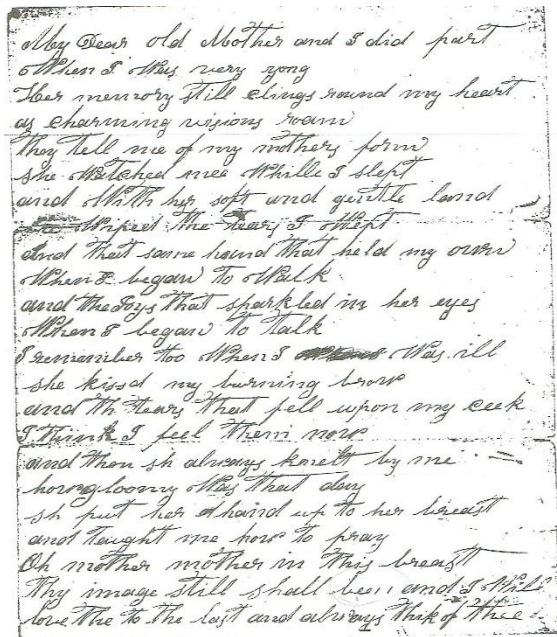 My Dear old Mother and I did part
When I Was very yong
Her memory still Clings round my heart
as Charming visions roam
they tell me of my mothers form
she Watched mee While I slept
and With her soft and gentle hand
Wiped the tears I Wept
And that same hand that held my own
When I began to Walk
and the Joys that sparkled in her eyes
When I began to talk
I remember too When I Was ill
she kissd my burning brow
and th tears that fell upon my ceek
I think I feel them now
and then sh always knelt by me
how gloomy Was that day
sh put her hand up to her breast
and taught me how to pray
Oh mother mother in this breast
Thy image still shall bee and I Will
love the to the last and always thik of thee